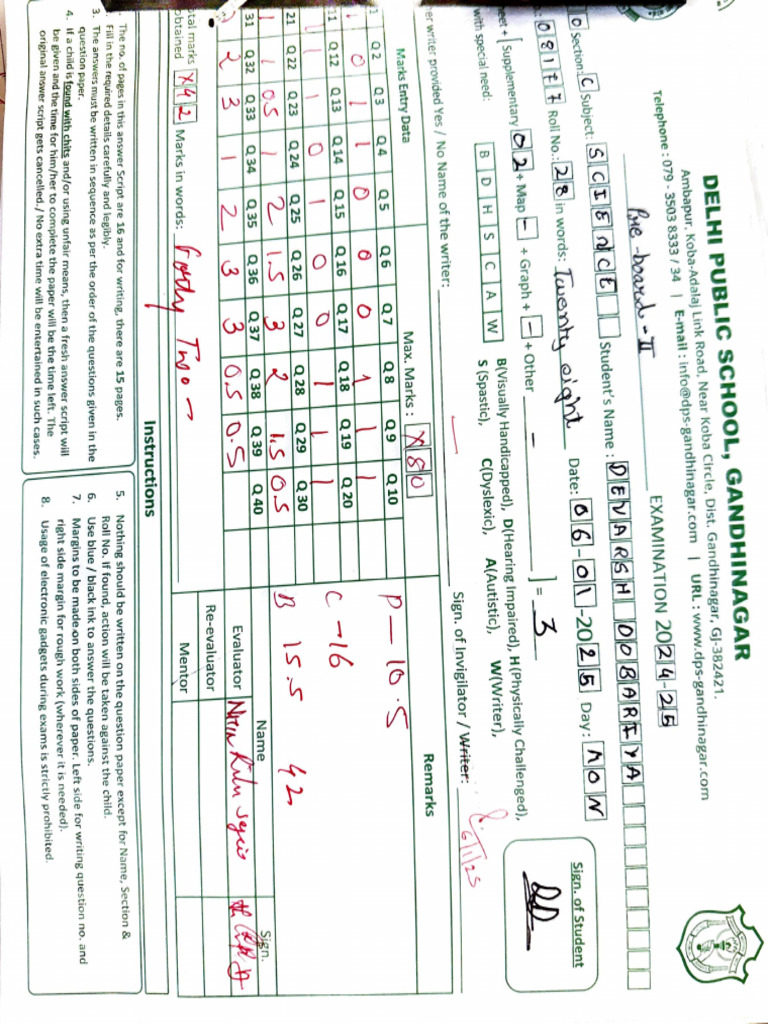 DELHI PUBLIC SCHOOL, GANDHINAGAR
Ambapur, Koba-Adalaj Link Road, Near Koba Circle, Dist. Gandhinagar, GJ-382421.
Telephone : 079 - 3503 8333 / 34 | E-mail : info@dps-gandhinagar.com | URL : www.dps-gandhinagar.com
Pre-board-II EXAMINATION 2024-25
0 Section: C Subject: SCIENCE Student's Name : DEVARSH DOBARIYA
08177 Roll No.: 28 in words: Twenty eight Date: 06-01-2025 Day: MON
eet + [ Supplementary 02 + Map - + Graph + - + Other - ] = 3
with special need: B D H S C A W
B(Visually Handicapped), D(Hearing Impaired), H(Physically Challenged),
S (Spastic), C(Dyslexic), A(Autistic), W(Writer),
Sign. of Student
er writer provided Yes / No Name of the writer: Sign. of Invigilator / Writer:
6/1/25
Marks Entry Data Max. Marks : X80 Remarks
1 Q 2 Q 3 Q 4 Q 5 Q 6 Q 7 Q 8 Q 9 Q 10
1 0 1 1 0 0 0 1 1 1
P - 10.5
11 Q 12 Q 13 Q 14 Q 15 Q 16 Q 17 Q 18 Q 19 Q 20
1 1 1 0 1 0 0 1 1 1
C - 16
21 Q 22 Q 23 Q 24 Q 25 Q 26 Q 27 Q 28 Q 29 Q 30
1 1 0.5 1 2 1.5 3 2 1.5 0.5
B 15.5 42
31 Q 32 Q 33 Q 34 Q 35 Q 36 Q 37 Q 38 Q 39 Q 40
2 3 1 2 3 3 0.5 0.5
Name Sign.
Evaluator
Re-evaluator
Mentor
tal marks
btained X42 Marks in words: Forty Two -
Instructions
1. The no. of pages in this answer Script are 16 and for writing, there are 15 pages.
Fill in the required details carefully and legibly.
3. The answers must be written in sequence as per the order of the questions given in the
question paper.
4. If a child is found with chits and/or using unfair means, then a fresh answer script will
be given and the time for him/her to complete the paper will be the time left. The
original answer script gets cancelled./ No extra time will be entertained in such cases.
5. Nothing should be written on the question paper except for Name, Section &
Roll No. If found, action will be taken against the child.
6. Use blue / black ink to answer the questions.
7. Margins to be made on both sides of paper. Left side for writing question no. and
right side margin for rough work (wherever it is needed).
8. Usage of electronic gadgets during exams is strictly prohibited.